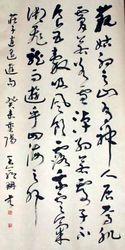 藐姑射之山有神人居焉肌
膚若冰雪淖約若處子不
食五穀吸風飲露乘雲氣
御飛龍而遊乎四海之外
莊子逍遙遊句 癸未重陽 王 書